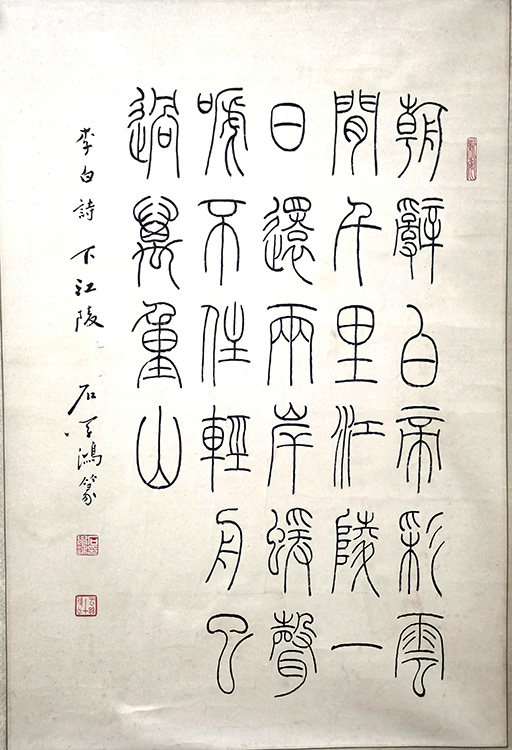 朝辭白帝彩雲
間千里江陵一
日還兩岸蝯聲
嗁不住輕舟已
過萬重山
李白詩 下江陵 石鴻篆